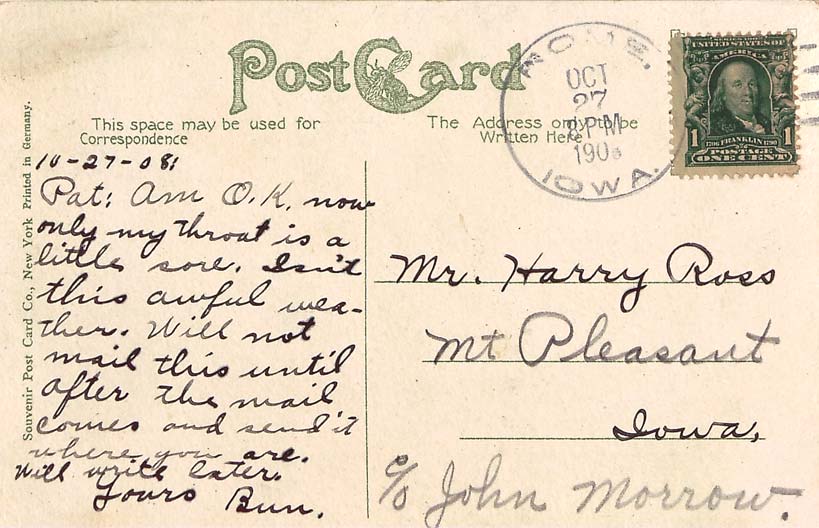 Post Card
This space may be used for
Correspondence
The Address only to be
Written Here
ROME,
OCT
27
PM
190
IOWA.
UNITED STATES OF
AMERICA
1 1706 FRANKLIN 1790 1
POSTAGE
ONE CENT
Souvenir Post Card Co., New York Printed in Germany.
10-27-08;
Pat; Am O.K. now
only my throat is a
little sore. Isn't
this awful wea-
ther. Will not
mail this until
after the mail
comes and send it
where you are.
Will write later.
Yours Bun.
Mr. Harry Ross
Mt Pleasant
Iowa,
c/o John Morrow.